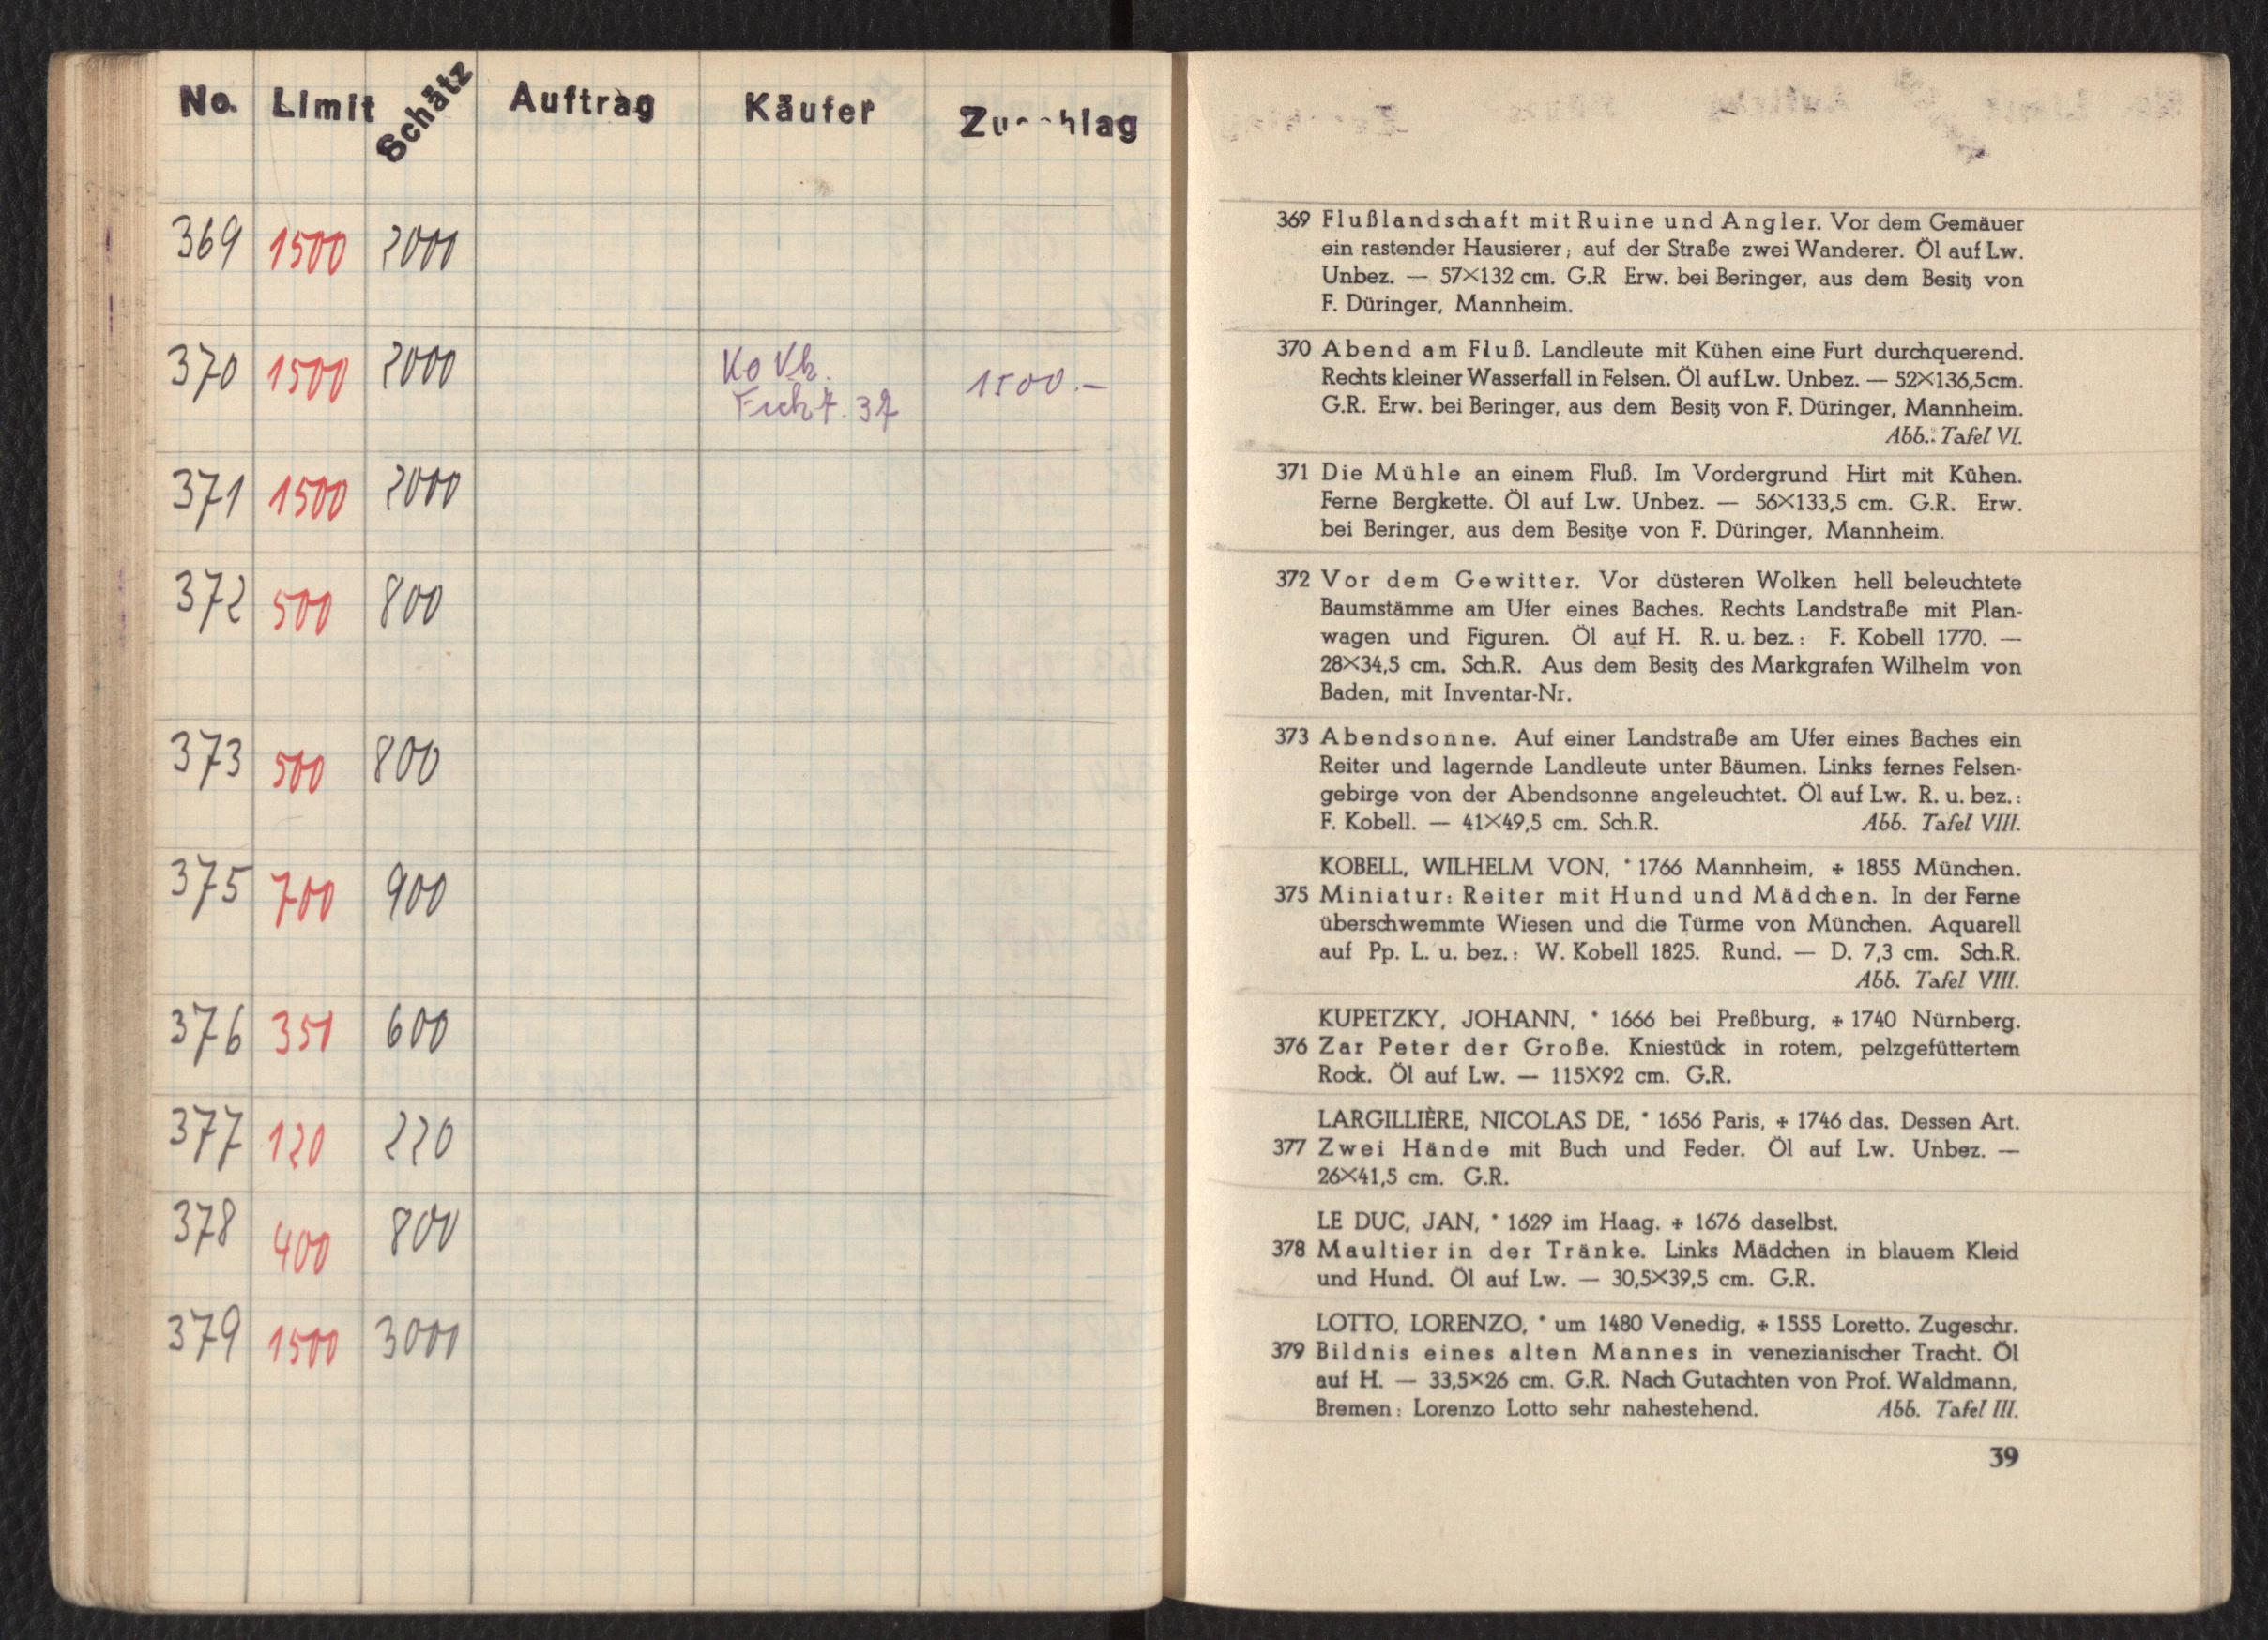 No. Limit Schätz Auftrag Käufer
369 1500 2000
370 1500 2000 1500.-
371 1500 2000
372 500 800
373 500 800
375 700 900
376 351 600
377 120 220
378 400 800
379 1500 3000
369 Flußlandschaft mit Ruine und Angler. Vor dem Gemäuer
ein rastender Hausierer; auf der Straße zwei Wanderer. Öl auf Lw.
Unbez. — 57×132 cm. G.R Erw. bei Beringer, aus dem Besitz von
F. Düringer, Mannheim.
370 Abend am Fluß. Landleute mit Kühen eine Furt durchquerend.
Rechts kleiner Wasserfall in Felsen. Öl auf Lw. Unbez. — 52×136,5 cm.
G.R. Erw. bei Beringer, aus dem Besitz von F. Düringer, Mannheim.
Abb.: Tafel VI.
371 Die Mühle an einem Fluß. Im Vordergrund Hirt mit Kühen.
Ferne Bergkette. Öl auf Lw. Unbez. — 56×133,5 cm. G.R. Erw.
bei Beringer, aus dem Besitze von F. Düringer, Mannheim.
372 Vor dem Gewitter. Vor düsteren Wolken hell beleuchtete
Baumstämme am Ufer eines Baches. Rechts Landstraße mit Plan-
wagen und Figuren. Öl auf H. R. u. bez.: F. Kobell 1770. —
28×34,5 cm. Sch.R. Aus dem Besitz des Markgrafen Wilhelm von
Baden, mit Inventar-Nr.
373 Abendsonne. Auf einer Landstraße am Ufer eines Baches ein
Reiter und lagernde Landleute unter Bäumen. Links fernes Felsen-
gebirge von der Abendsonne angeleuchtet. Öl auf Lw. R. u. bez.:
F. Kobell. — 41×49,5 cm. Sch.R. Abb. Tafel VIII.
KOBELL, WILHELM VON, * 1766 Mannheim, + 1855 München.
375 Miniatur: Reiter mit Hund und Mädchen. In der Ferne
überschwemmte Wiesen und die Türme von München. Aquarell
auf Pp. L. u. bez.: W. Kobell 1825. Rund. — D. 7,3 cm. Sch.R.
Abb. Tafel VIII.
KUPETZKY, JOHANN, * 1666 bei Preßburg, + 1740 Nürnberg.
376 Zar Peter der Große. Kniestück in rotem, pelzgefüttertem
Rock. Öl auf Lw. — 115X92 cm. G.R.
LARGILLIÈRE, NICOLAS DE, * 1656 Paris, + 1746 das. Dessen Art.
377 Zwei Hände mit Buch und Feder. Öl auf Lw. Unbez. —
26×41,5 cm. G.R.
LE DUC, JAN, * 1629 im Haag. + 1676 daselbst.
378 Maultier in der Tränke. Links Mädchen in blauem Kleid
und Hund. Öl auf Lw. — 30,5×39,5 cm. G.R.
LOTTO, LORENZO, * um 1480 Venedig, + 1555 Loretto. Zugeschr.
379 Bildnis eines alten Mannes in venezianischer Tracht. Öl
auf H. — 33,5×26 cm. G.R. Nach Gutachten von Prof. Waldmann,
Bremen: Lorenzo Lotto sehr nahestehend. Abb. Tafel III.
39